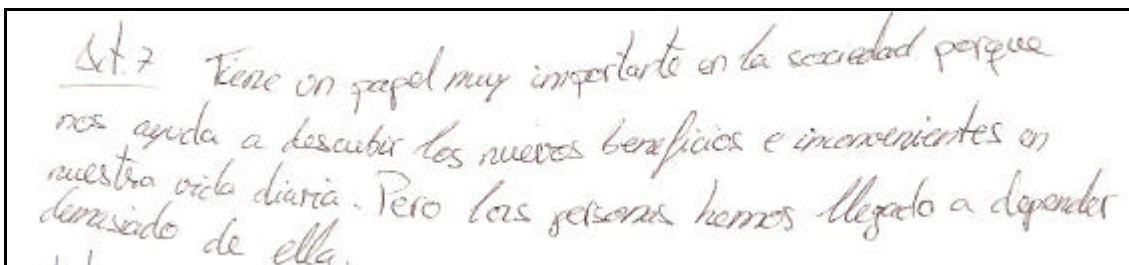 Act.7 Tiene un papel muy importante en la sociedad porque
nos ayuda a descubir los nuevos beneficios e inconvenientes en
nuestra vida diaria. Pero las personas hemos llegado a depender
demasiado de ella.